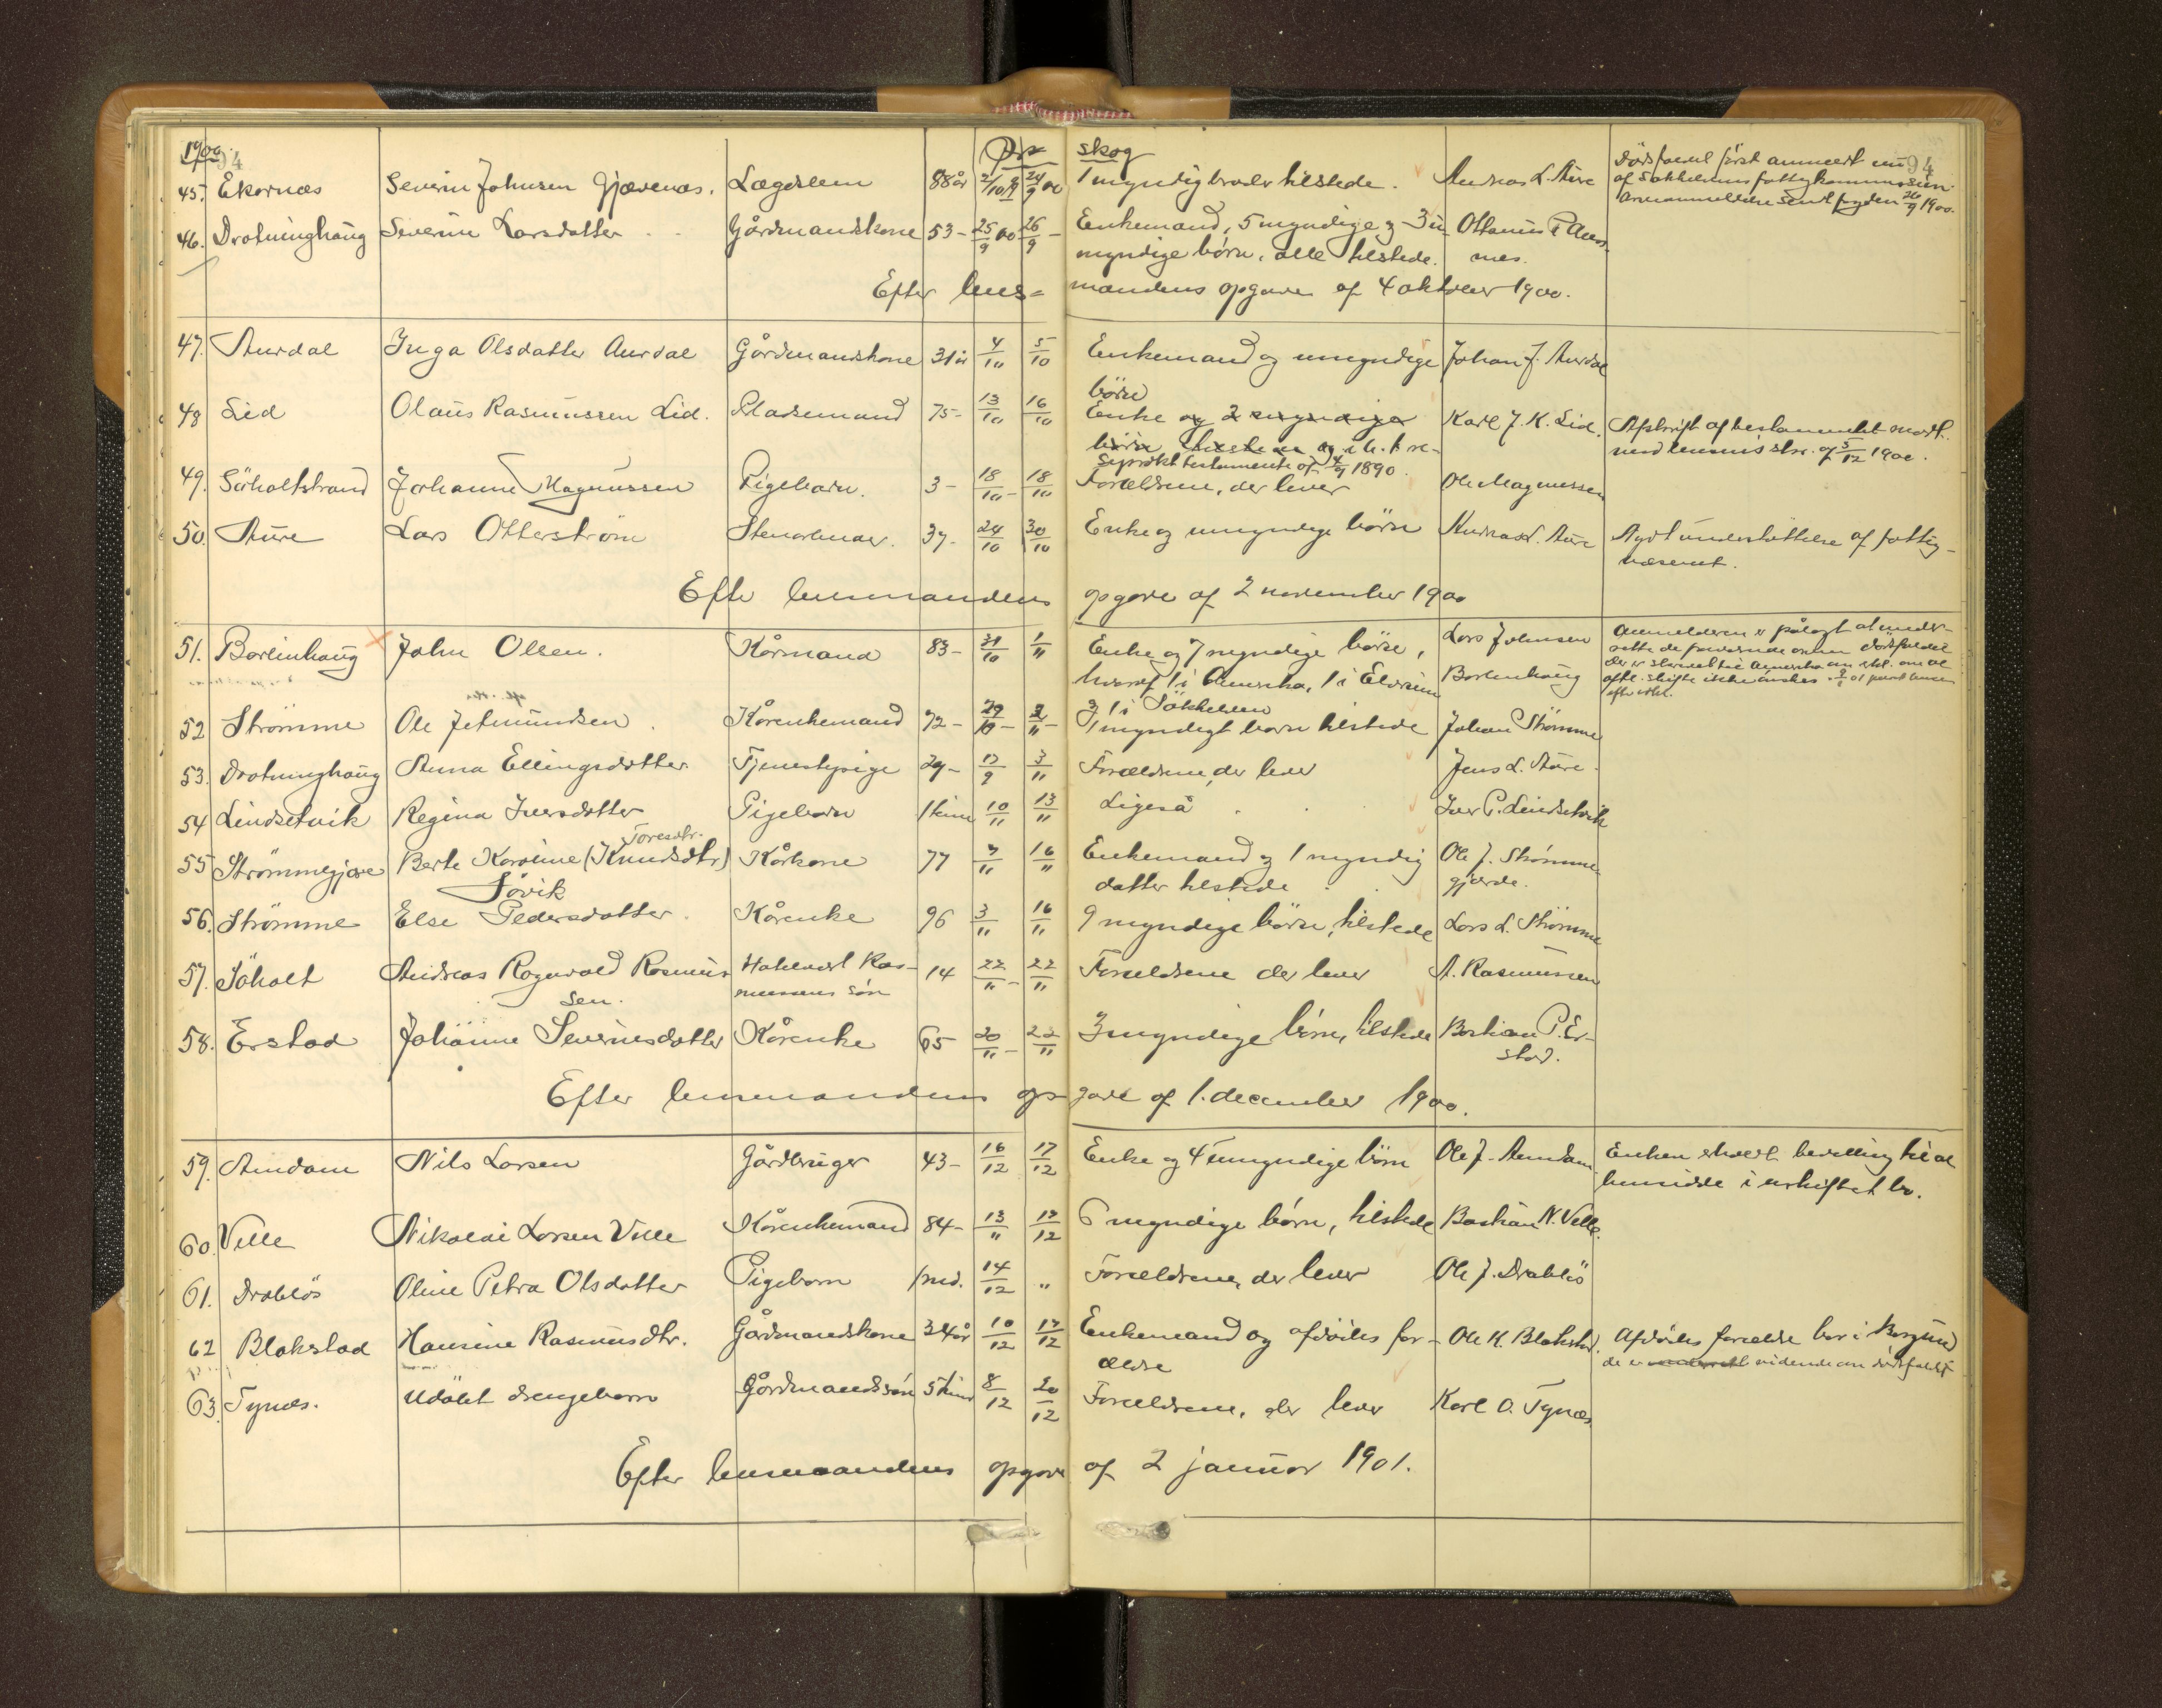 1900. 94
Ør skog
94
45. Ekornæs Severin Johnsen Gjævenæs. Lægdslem 88 år 2/10 99 24/9 00 1 myndig broder tilstede. Andreas L. Aure Dödsfaldet først anmeldt nu
af Søkkelvens fattigkommission.
Sendt fogden 26/9 1900.
46. Drotninghaug Severine Larsdatter Gårdmandskone 53 - 25/9 00 26/9 - Enkemand, 5 myndige og 3 u- Ottanius P Aurs-
myndige börn, alle tilstede. nes.
Efter lens= mandens opgave af 4 oktober 1900.
47. Aurdal Inga Olsdatter Aurdal Gårdmandskone 31 år 4/10 5/10 Enkemand og umyndige Johan J. Aurdal
börn
48 Lid Olaus Rasmussen Lid. Pladsmand 75 - 13/10 16/10 Enke og 2 umyndige Karl J. K. Lid. Afskrift af testamentet modt.
börn tilstede og i h. t. re- med lensm's skr. af 5/12 1900.
siprokt testamente af 4/9 1890.
49. Sörholtstrand Johanne Magnussen Pigebarn. 3 - 18/10 - 18/10 Forældrene, der lever Ole Magnussen
50. Aure Lars Otterström Stenarbeider. 37 - 24/10 30/10 Enke og umyndige börn Andreas L. Aure Nydt understöttelse af fattig-
væsenet.
Efter lensmandens opgave af 2 november 1900
51. Borlinhaug John Olsen. Kårmand 83 - 31/10 1/11 Enke og 7 myndige börn, Lars Johnsen Anmelderen er pålagt at under-
rette de fraværende om dödsfaldet
hvoraf 1 i Amerika, 1 i Borlinhaug
1 i Søkkelven
52 Strømme Ole Jetmundsen. Kårenkemand 72 - 29/10 - 2/11 - 1 myndigt barn tilstede Johan Strømme
53. Drotninghaug Anna Ellingsdatter Tjenestepige 29 - 17/9 3/11 Forældrene, der lever Jens L. Aure.
54 Lindsetvik Regina Iversdatter Pigebarn 1 time 10/11 13/11 Ligeså Iver P. Lindsetvik
Toresdtr.
55 Strømmegjære Berte Karoline (Knudsdtr) Kårkone 77 7/11 16/11 Enkemand og 1 myndig Ole J. Strømme
Søvik datter tilstede gjærde.
56. Strömme Else Pedersdatter. Kårenke 96 3/11 16/11 9 myndige börn, tilstede Lars L. Strömme
57. Söholt Andreas Ragnvald Rasmus- Hotelvert Ras- 14 22/11 - 22/11 Forældrene der lever A. Rasmussen
sen. mussens sön
58. Erstad Johanne Severinsdatter Kårenke 65 20/11 - 22/11 3 myndige börn, tilstede Bastian P. Er-
stad.
Efter lensmandens op- gave af 1. december 1900.
59. Amdam Nils Larsen Gårdbruger 43 - 16/12 17/12 Enke og 4 umyndige börn Ole J. Amdam Enken erholdt bevilling til at
hensidde i uskiftet bo.
60. Velle Nikolai Larsen Velle Kårenkemand 84 - 13/11 17/12 6 myndige börn, tilstede Bastian N. Velle.
61. Drablös Oline Petra Olsdatter Pigebarn 1 md. 14/12 " Forældrene, der lever Ole J. Drablös
62 Blakstad Hansine Rasmusdtr. Gårdmandskone 34 år 10/12 17/12 Enkemand og afdödes for- Ole K. Blakstad. Afdödes forældre bor i Borgund
ældre de er underrett vidende om dödsfaldet
63. Tynes. Udöbt drengebarn Gårdmandssön 5 timer 8/12 20/12 Forældrene, der lever Karl O. Tynes
Efter lensmandens opgave af 2 januar 1901.